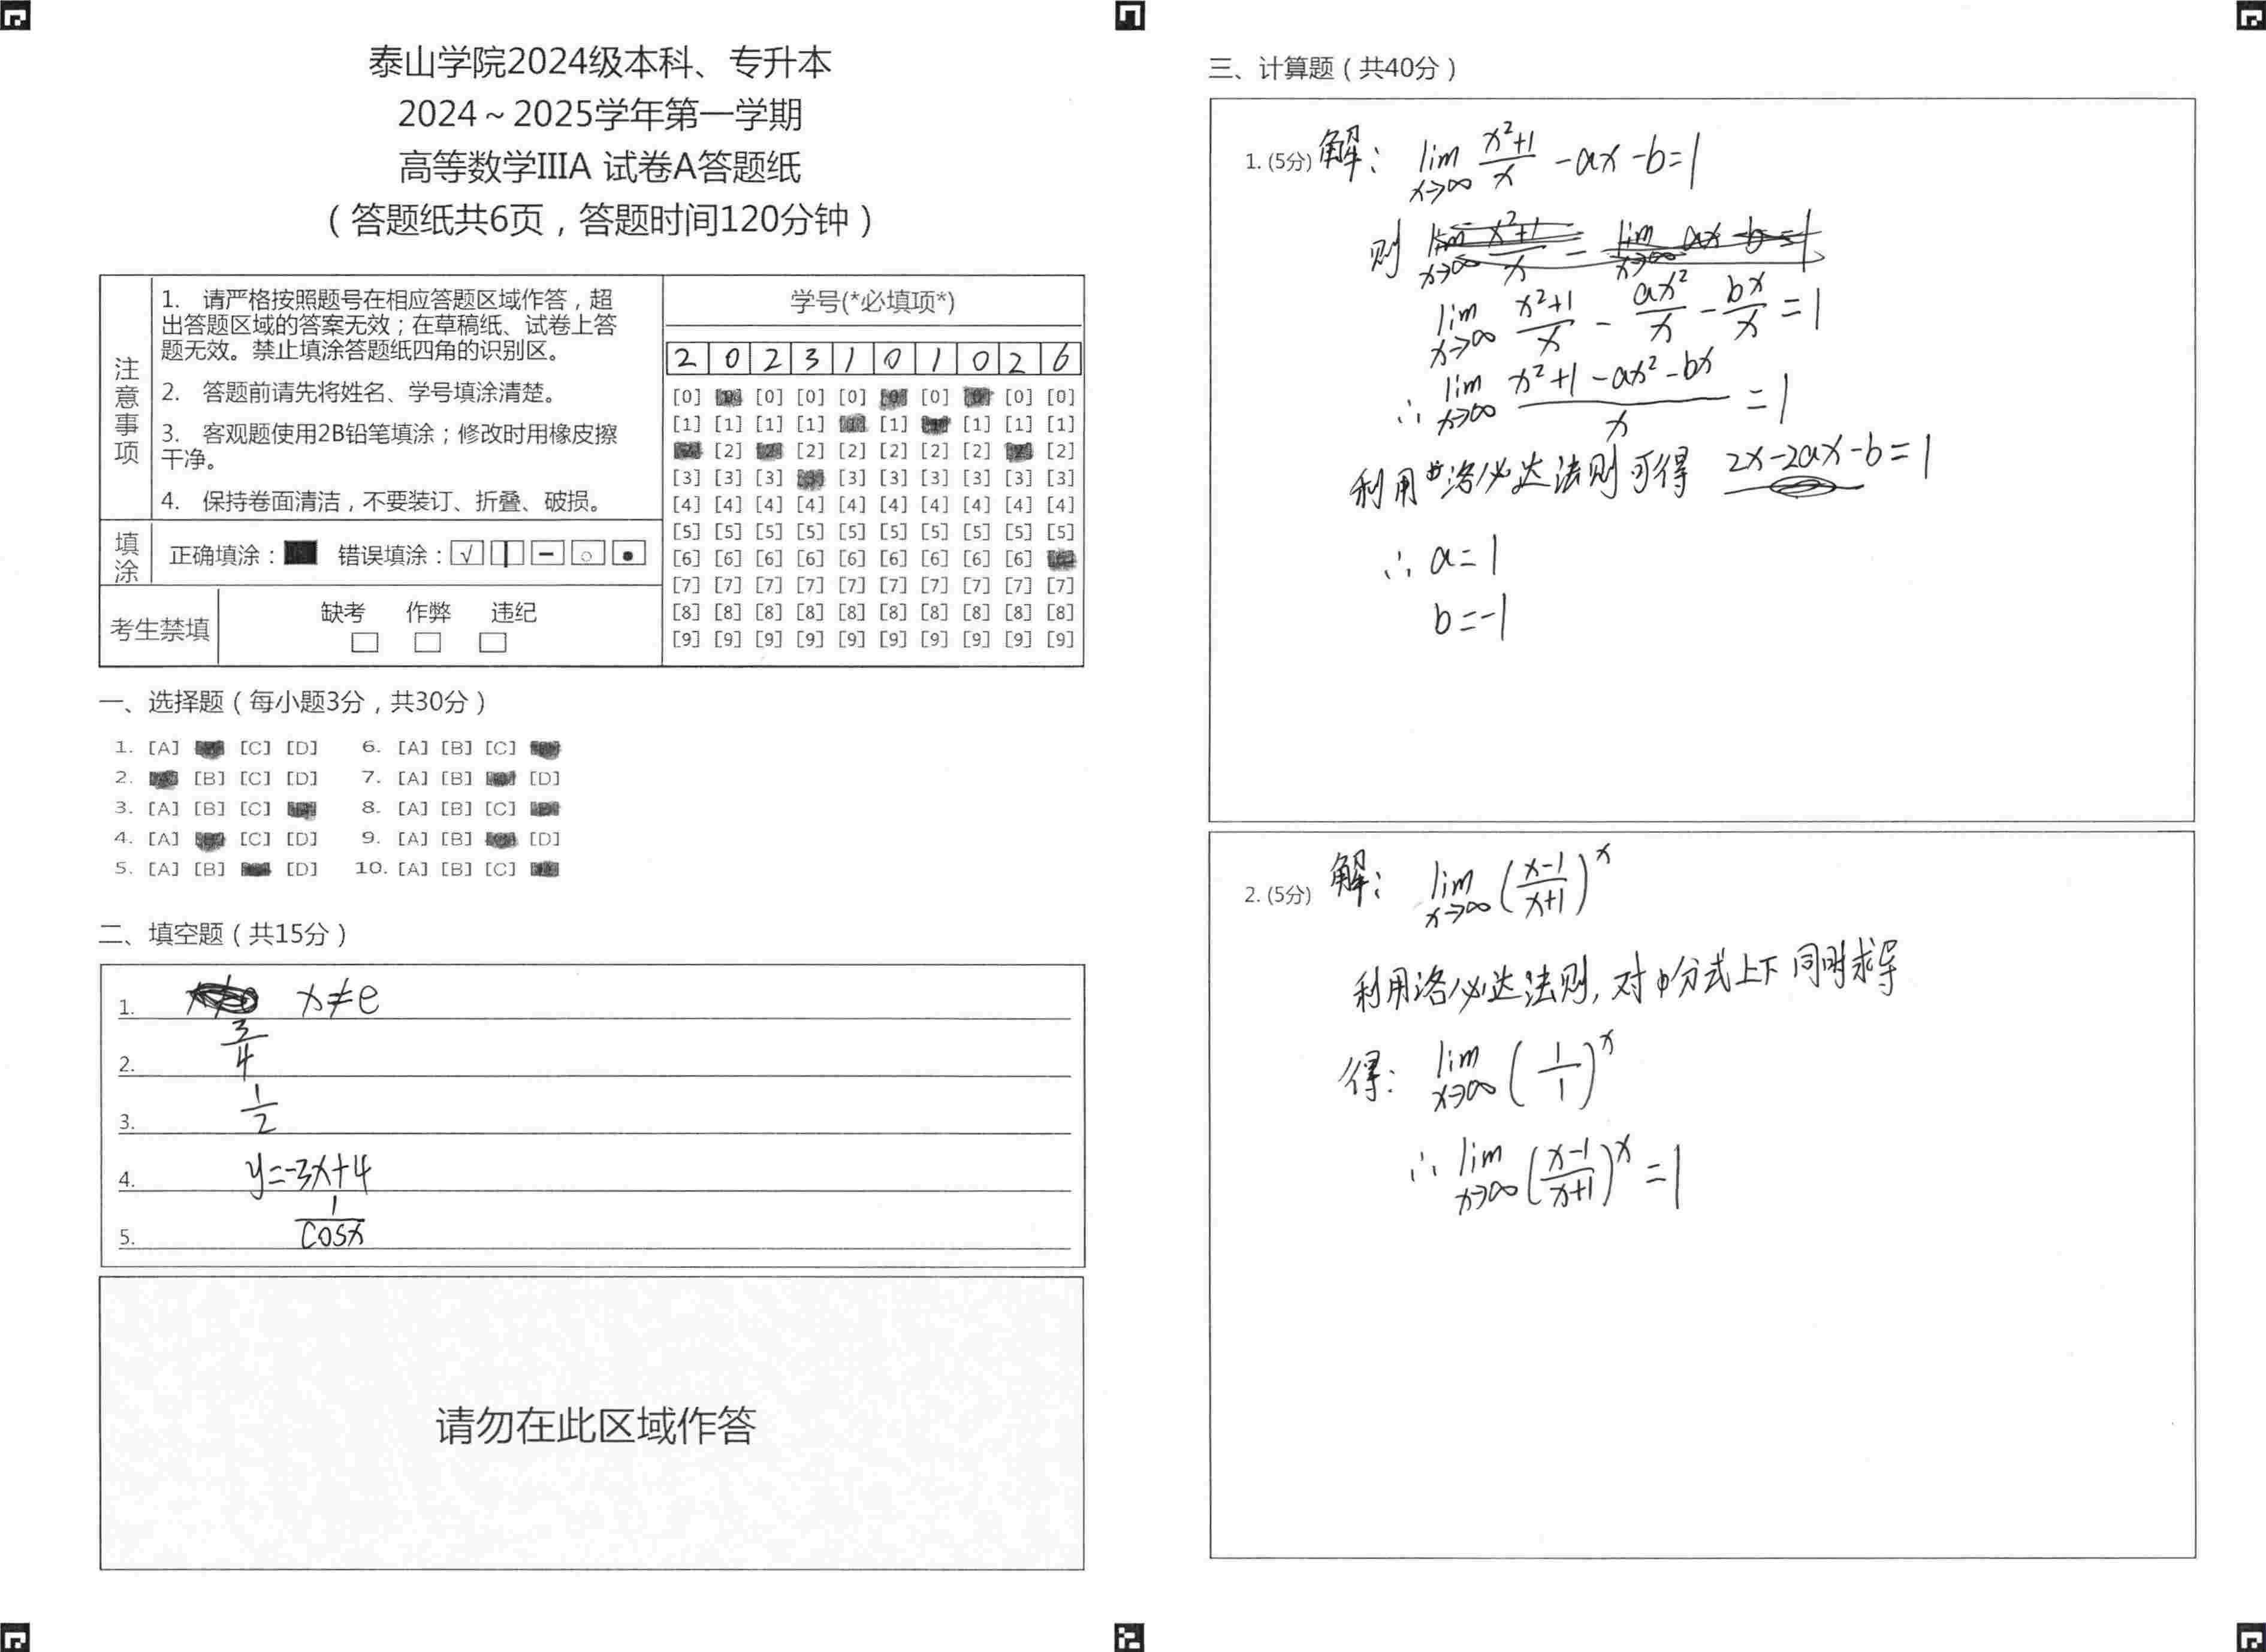 泰山学院2024级本科、专升本
2024～2025学年第一学期
高等数学IIIA 试卷A答题纸
（答题纸共6页，答题时间120分钟）
注意事项
1. 请严格按照题号在相应答题区域作答，超
出答题区域的答案无效；在草稿纸、试卷上答
题无效。禁止填涂答题纸四角的识别区。
2. 答题前请先将姓名、学号填涂清楚。
3. 客观题使用2B铅笔填涂；修改时用橡皮擦
干净。
4. 保持卷面清洁，不要装订、折叠、破损。
填涂 正确填涂： 错误填涂：
考生禁填 缺考 作弊 违纪
学号(*必填项*)
2 0 2 3 1 0 1 0 2 6
[0] [0] [0] [0] [0] [0] [0]
[1] [1] [1] [1] [1] [1] [1] [1]
[2] [2] [2] [2] [2] [2] [2]
[3] [3] [3] [3] [3] [3] [3] [3] [3]
[4] [4] [4] [4] [4] [4] [4] [4] [4] [4]
[5] [5] [5] [5] [5] [5] [5] [5] [5] [5]
[6] [6] [6] [6] [6] [6] [6] [6] [6]
[7] [7] [7] [7] [7] [7] [7] [7] [7] [7]
[8] [8] [8] [8] [8] [8] [8] [8] [8] [8]
[9] [9] [9] [9] [9] [9] [9] [9] [9] [9]
一、选择题（每小题3分，共30分）
1. [A] [C] [D] 6. [A] [B] [C]
2. [B] [C] [D] 7. [A] [B] [D]
3. [A] [B] [C] 8. [A] [B] [C]
4. [A] [C] [D] 9. [A] [B] [D]
5. [A] [B] [D] 10. [A] [B] [C]
二、填空题（共15分）
1. x≠e
2. 3/4
3. 1/2
4. y=-3x+4
5. 1/cosx
请勿在此区域作答
三、计算题（共40分）
1. (5分) 解： lim x→∞ (x²+1)/x -ax-b=1
则
lim x→∞ (x²+1)/x - ax²/x - bx/x =1
∴ lim x→∞ (x²+1-ax²-bx)/x =1
利用洛必达法则可得 2x-2ax-b=1
∴ a=1
b=-1
2. (5分) 解： lim x→∞ ((x-1)/(x+1))^x
利用洛必达法则，对分式上下同时求导
得： lim x→∞ (1/1)^x
∴ lim x→∞ ((x-1)/(x+1))^x =1